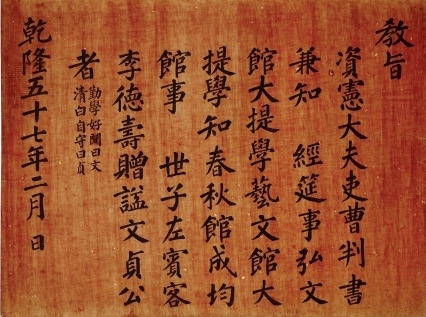 教旨
資憲大夫吏曹判書
兼知 經筵事弘文
館大提學藝文館大
提學知春秋館成均
館事 世子左賓客
李德壽贈諡文貞公
者 勤學好聞曰文
清白自守曰貞
乾隆五十七年二月 日